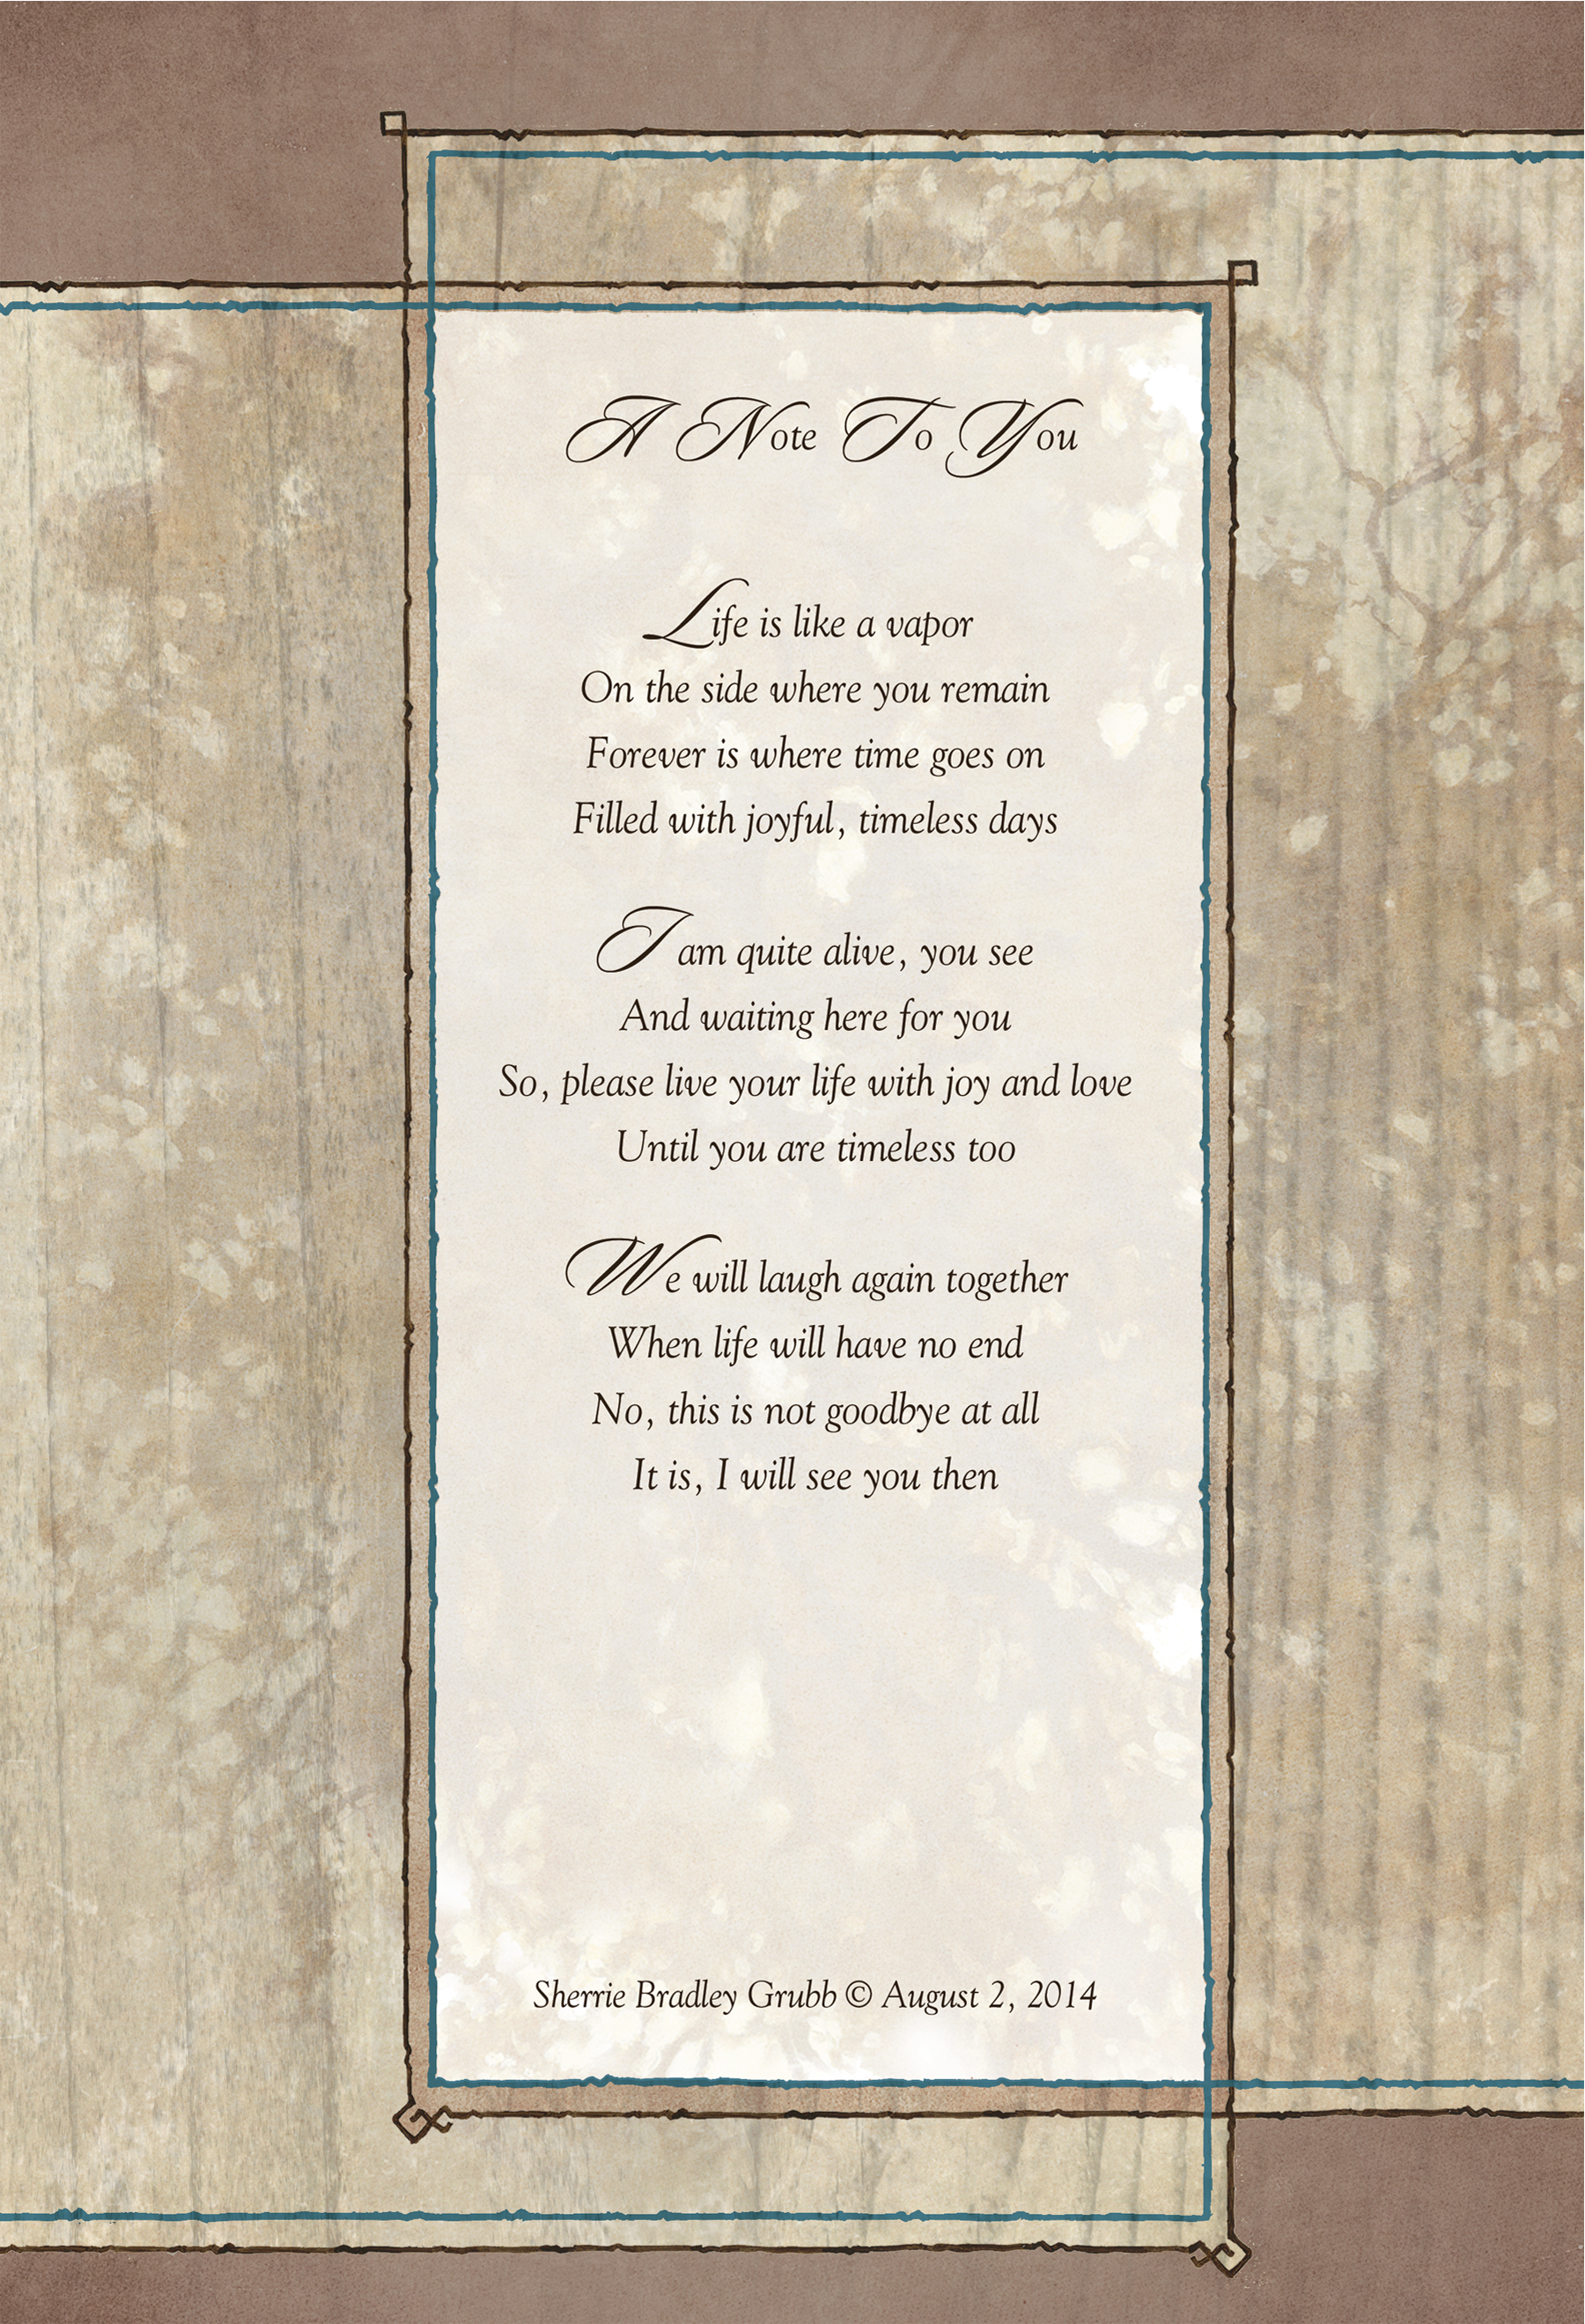 A Note To You
Life is like a vapor
On the side where you remain
Forever is where time goes on
Filled with joyful, timeless days
I am quite alive, you see
And waiting here for you
So, please live your life with joy and love
Until you are timeless too
We will laugh again together
When life will have no end
No, this is not goodbye at all
It is, I will see you then
Sherrie Bradley Grubb © August 2, 2014